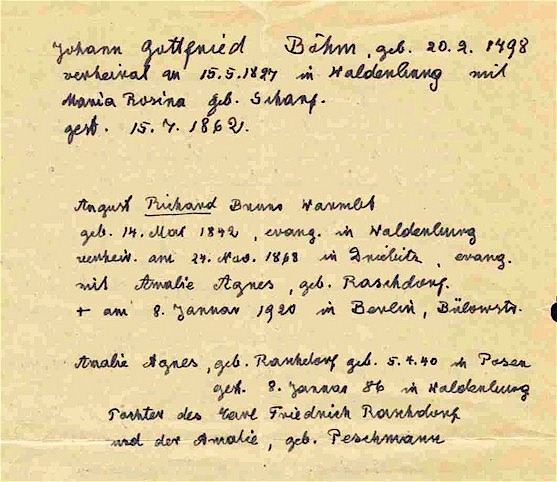 Johann Gottfried Böhm, geb. 20.2.1798
verheirat am 15.5.1827 in Waldenburg mit
Maria Rosina geb. Scharf.
gest. 15.7.1862.
August Richard Bruno Warmbt
geb. 14. Mai 1842, evang. in Waldenburg
verheir. am 24. Nov. 1868 in evang.
mit Amalie Agnes, geb. Raschdorf.
+ am 8. Januar 1920 in Berlin, Bülowstr.
Amalie Agnes, geb. Raschdorf geb. 5.4.40 in Posen
gest. 8. Januar 86 in Waldenburg
Tochter des Carl Friedrich Raschdorf
und der Amalie, geb. Peschmann